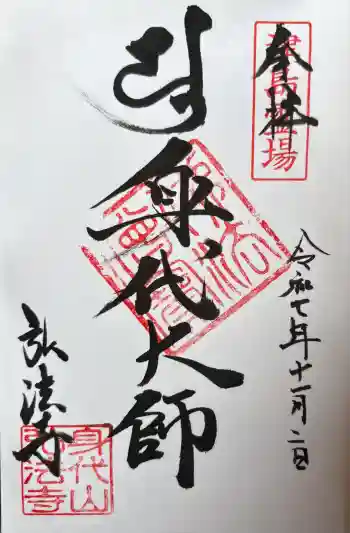 奉拝
霊場
令和七年十一月二日
身代大師
弘法寺
身代山
弘法寺